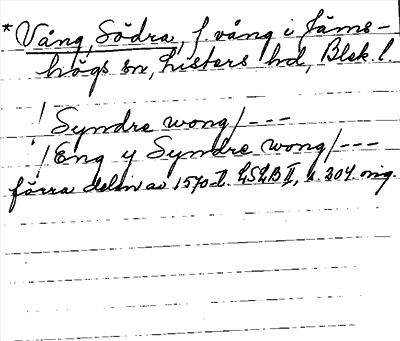 * Vång, Södra, f. vång i Jäms-
högs sn, Listers hd, Blek. l.
/ Syndre wong/---
/ Eng y Syndre wong/---
förra delen av 1570-t. LSLB II, s. 304. orig.